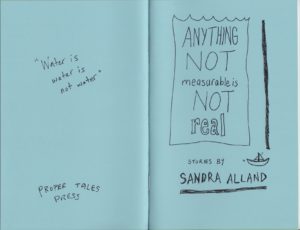 "Water is
water is
not water"
PROPER TALES
PRESS
ANYTHING
NOT
measurable is
NOT
real
STORIES BY
SANDRA ALLAND